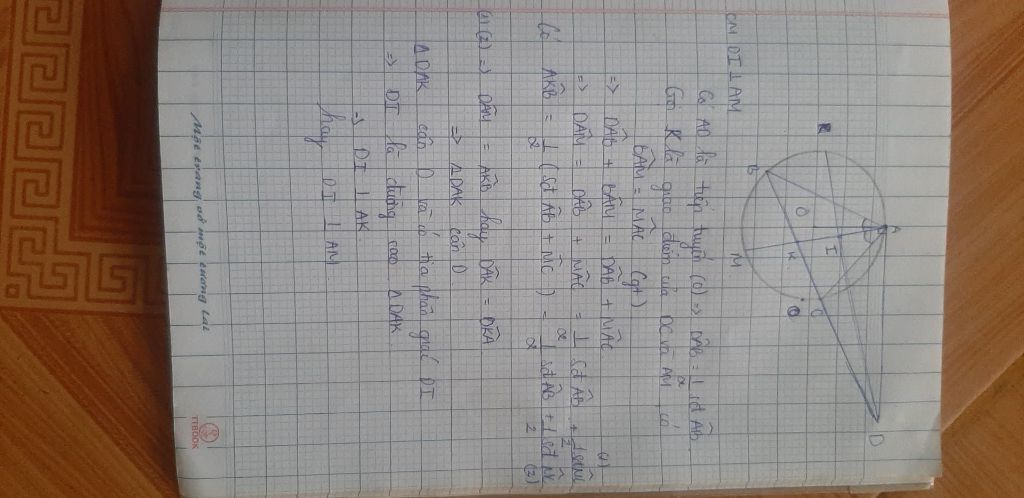 CM DI ⊥ AM
Có AD là tiếp tuyến (O) => DÂB = 1/2 sđ AB
Gọi K là giao điểm của DC và AM, có
BÂM = MÂC (gt)
=> DÂB + BÂM = DÂB + MÂC
=> DÂM = DÂB + MÂC = 1/2 sđ AB + 1/2 sđ MC (1)
Có AKB = 1/2 (sđ AB + MC) = 1/2 sđ AB + 1/2 sđ MC (2)
(1) (2) => DÂM = AKB hay DÂK = DKA
=> ΔDAK cân D
ΔDAK cân D và có tia phân giác DI
=> DI là đường cao ΔDAK
=> DI ⊥ AK
hay DI ⊥ AM
A
B
C
D
O
I
K
M
TTBOOK